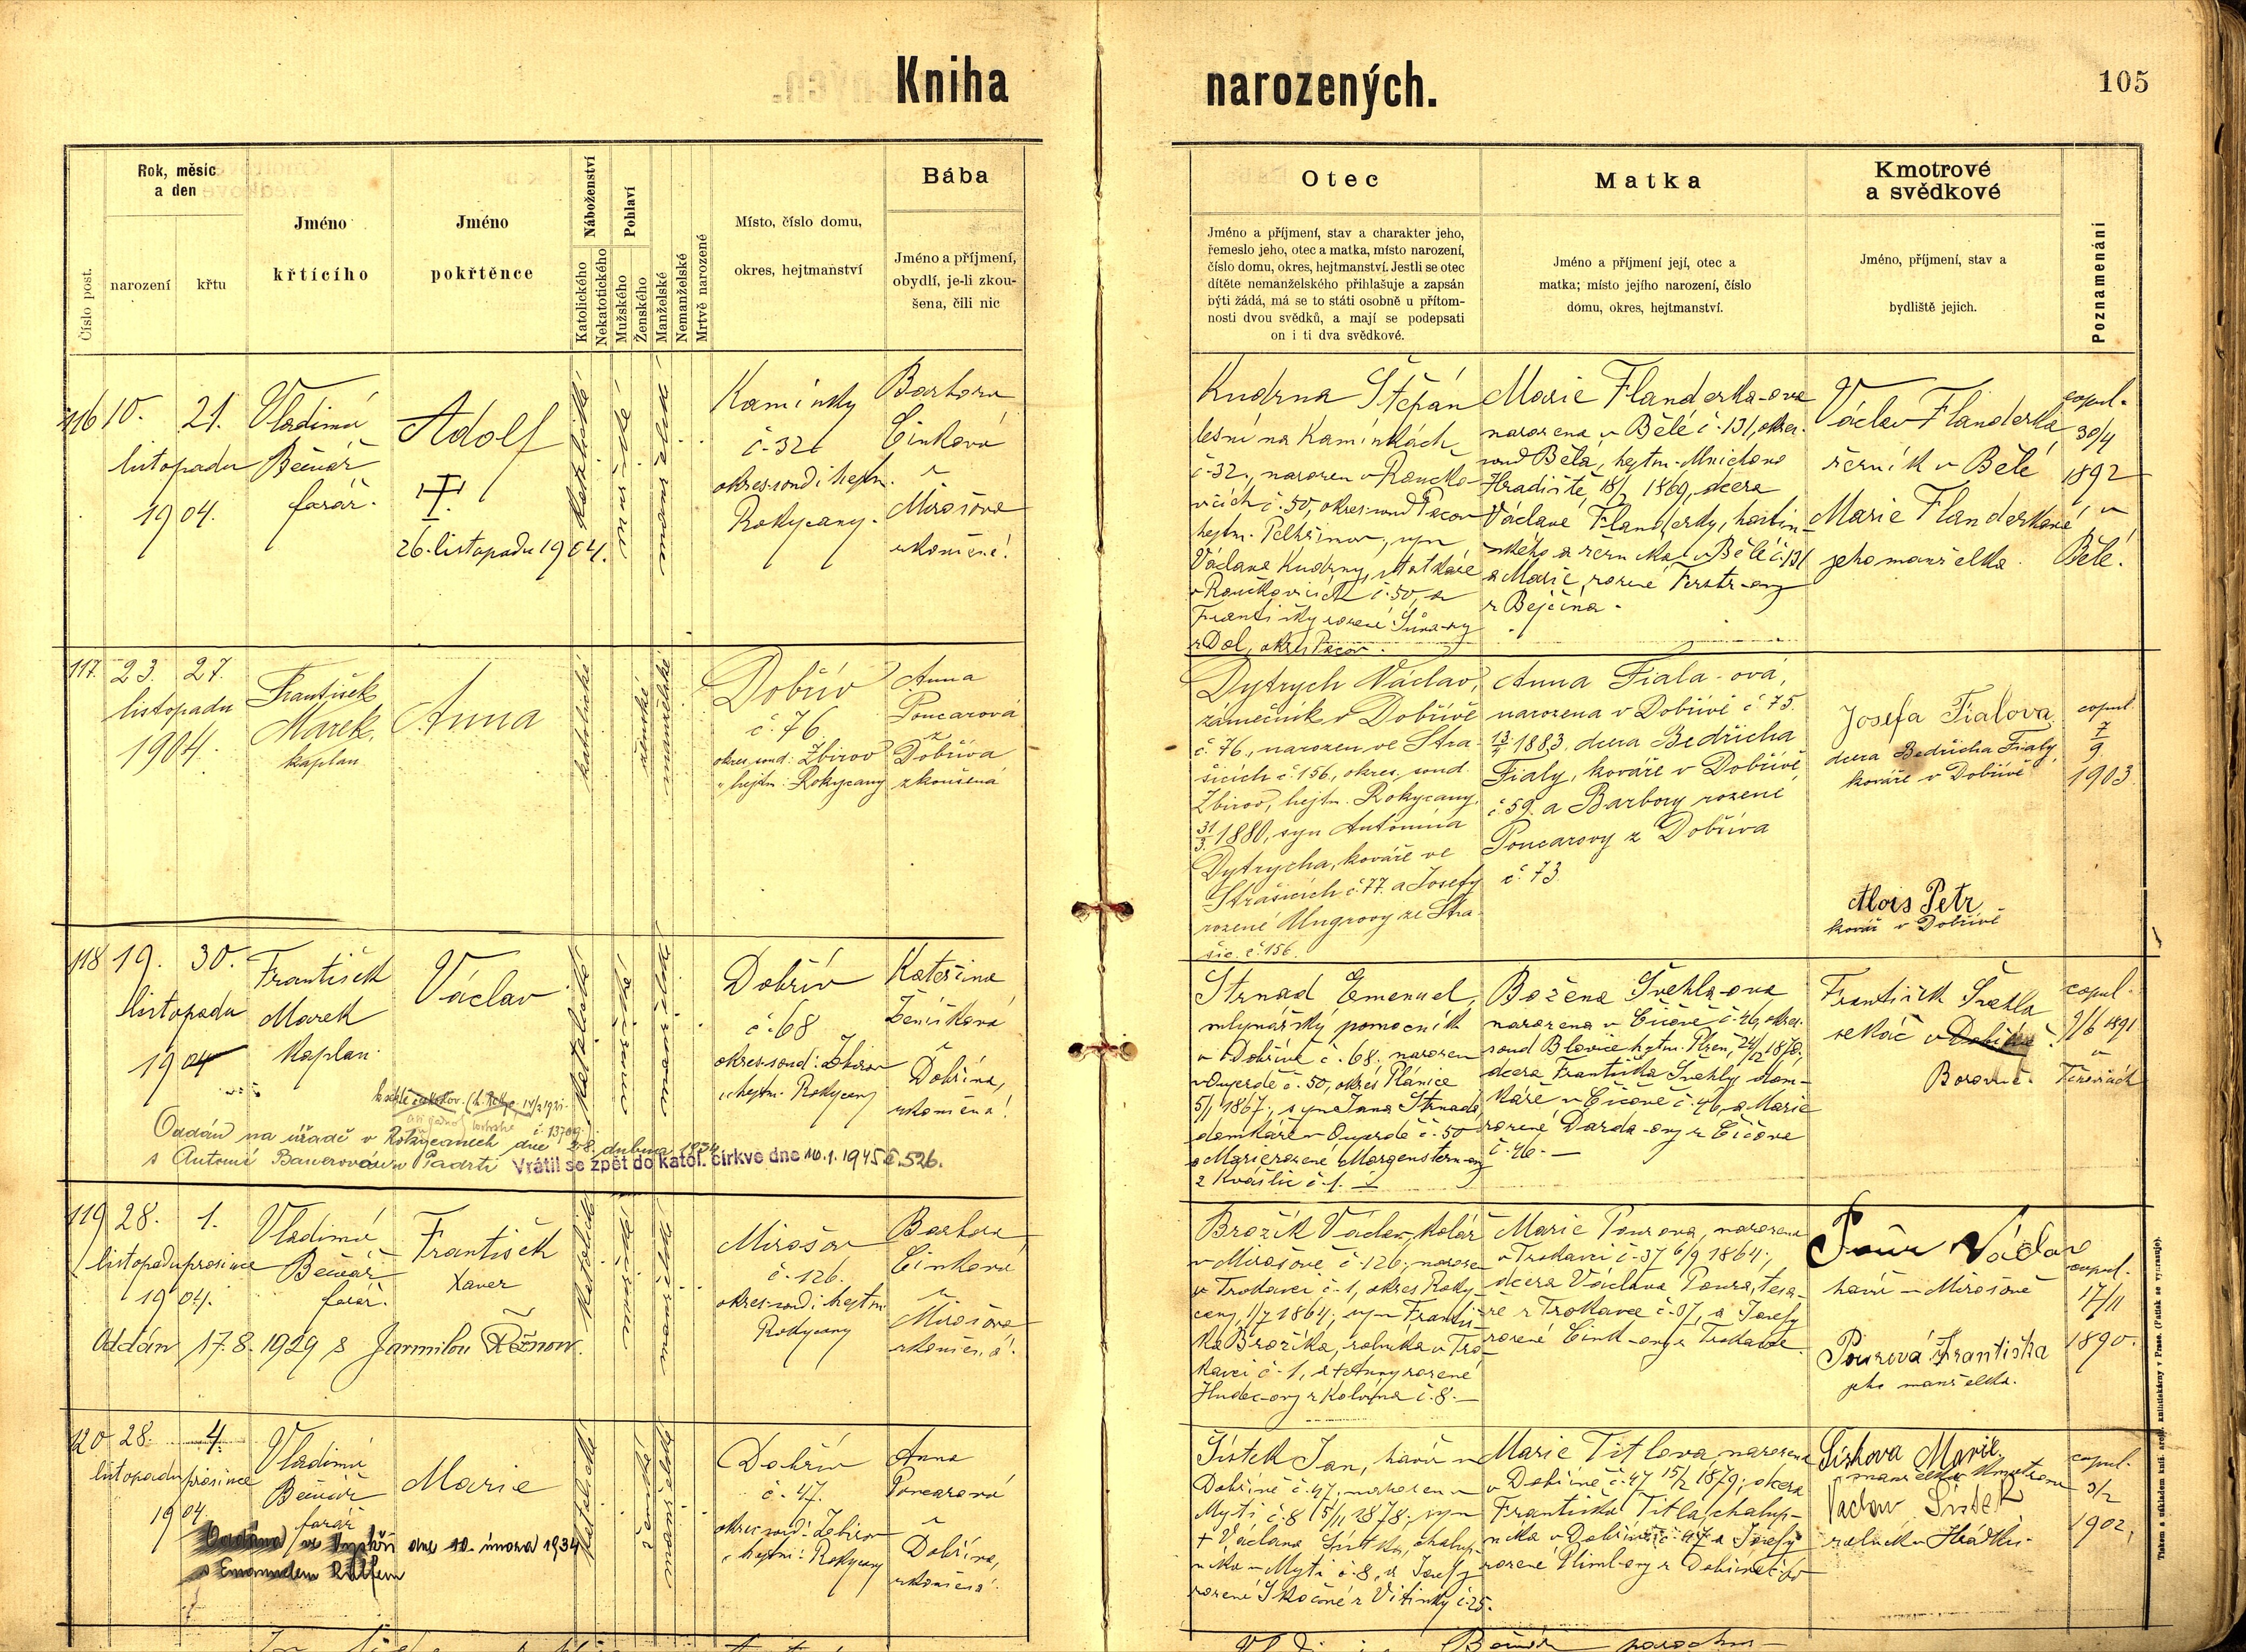 Kniha
narozených.
105
Rok, měsíc
a den
Bába
Číslo post.
narození
křtu
Jméno
křtícího
Jméno
pokřtěnce
Náboženství
Katolického
Nekatotického
Pohlaví
Mužského
Ženského
Manželské
Nemanželské
Mrtvě narozené
Místo, číslo domu,
okres, hejtmanství
Jméno a příjmení,
obydlí, je-li zkou-
šena, čili nic
Otec
Matka
Kmotrové
a svědkové
Poznamenání
Jméno a příjmení, stav a charakter jeho,
řemeslo jeho, otec a matka, místo narození,
číslo domu, okres, hejtmanství. Jestli se otec
dítěte nemanželského přihlašuje a zapsán
býti žádá, má se to státi osobně u přítom-
nosti dvou svědků, a mají se podepsati
on i ti dva svědkové.
Jméno a příjmení její, otec a
matka; místo jejího narození, číslo
domu, okres, hejtmanství.
Jméno, příjmení, stav a
bydliště jejich.
116
10. 21.
listopadu
1904.
Vladimír
Bečvář
farář.
Adolf
26. listopadu 1904.
katolické
mužské
manželské
Kamínky
č. 32
okres. soud i hejtm.
Rokycany.
Barbora
Cinková
z
Mirošova
zkoušená!
Kudrna Štěpán
lesní na Kamínkách
č. 32, narozen v
č. 50, okres. soud Pacov
hejtm. Pelhřimov, syn
Václava Kudrny,
č. 50, a
Františky rozené
z Dol, okres Pacov.
Marie Flanderka-ova
narozena v Bělé č. 131, okres.
soud Bělá, hejtm. Mnichovo
Hradiště, 18/2 1869, dcera
Václava Flanderky, hostin-
ského a řezníka v Bělé č. 131
a Marie, rozené
Václav Flanderka
řezník v Bělé
Marie Flanderková, v
jeho manželka. Bělé.
copul.
30/4
1892
117.
23. 27.
listopadu
1904.
František
Marek,
kaplan
Anna
katolické
ženské
manželské
Dobřív
č. 76.
okres. soud: Zbirov
" hejtm.: Rokycany
Anna
Poncarová
z
Dobříva
zkoušená
Dytrych Václav,
zámečník v Dobřívě
č. 76, narozen ve Stra-
šicích č. 156, okres. soud
Zbirov, hejtm. Rokycany
31/3. 1880, syn Antonína
Dytrycha, kováře ve
Strašicích č. 77. a Josefy
rozené Ungrovy ze Stra-
šic. č. 156.
Anna Fiala-ová,
narozena v Dobřívě č. 75.
1883. dcera Bedřicha
Fialy, kováře v Dobřívě
č. 59. a Barbory rozené
Poncarovy z Dobříva
č. 73.
Josefa Fialova
dcera Bedřicha Fialy,
kováře v Dobřívě
Alois Petr
kovář v Dobřívě
copul.
7/9
1903
118
19. 30.
listopadu
1904
František
Marek
kaplan.
Václav
katolické
mužské
manželské
Dobřív
č. 68
okres. soud: Zbirov
" hejtm. Rokycany
Kateřina
Ženíšková
z
Dobříva,
zkoušená!
Oddán na úřadě v Rokycanech dne 28. dubna 1934
s Antonií Bauerovou v Padrti
Vrátil se zpět do katol. církve dne 10.1.1945 č. 526.
Strnad Emanuel,
mlynářský pomocník
v Dobřívě č. 68. narozen
č. 50, okres Plánice
5/1 1867, syn Jana Strnada,
domkáře v č. 50
a Marie rozené Morgenstern-ovy
z Kvášlic č. 1.
Božena Švehla-ova
narozena v Čičově č. 46, okres.
soud Blovice hejtm. Plzeň, 24/12 1870,
dcera Františka Švehly dom-
káře v Čičově č. 46, a Marie
rozené Darda-ovy z Čičova
č. 46.
František Švehla
sekáč v
copul.
9/6 1891
v
119
28. 1.
listopadu prosince
1904.
Vladimír
Bečvář
farář.
František
Xaver
katolické
mužské
manželské
Mirošov
č. 126.
okres. soud i hejtm.
Rokycany
Barbora
Cinková
z
Mirošova
zkoušená.
Oddán 17.8. 1929 s Jarmilou
Brožík Václav, kolář
v Mirošově č. 126, narozen
v Trokavci č. 1, okres Roky-
cany, 1/7 1864, syn Františ-
ka Brožíka, rolníka v Tro-
kavci č. 1, a Anny rozené
Hudec-ovy z Kolvína č. 8.
Marie Pourova, narozena
v Trokavci č. 37 6/9 1864,
dcera Václava Poura, tesa-
ře z Trokavce č. 37, a Josefy
rozené Cink-ovy z Trokavce.
Pour Václav
havíř v Mirošově
Pourová Františka
jeho manželka.
copul.
17/11
1890.
120
28. 4.
listopadu prosince
1904.
Vladimír
Bečvář
farář
Marie
katolické
ženské
manželské
Dobřív
č. 47.
okres. soud: Zbirov
" hejtm.: Rokycany
Anna
Poncarová
z
Dobříva,
zkoušená.
dne 10. února 1934
Šístek Jan, havíř v
Dobřívě č. 47, narozen v
Mýtě č. 8 15/11 1878, syn
† Václava Šístka, chalup-
níka v Mýtě č. 8, a Josefy
rozené Skočné z Vitinky č. 25.
Marie Titlova, narozena
v Dobřívě č. 47 15/2 1879, dcera
Františka Titla, chalup-
níka v Dobřívě č. 47 a Josefy
Šiškova Marie
Václav Šístek
rolník v Hrádku.
copul.
3/2
1902,